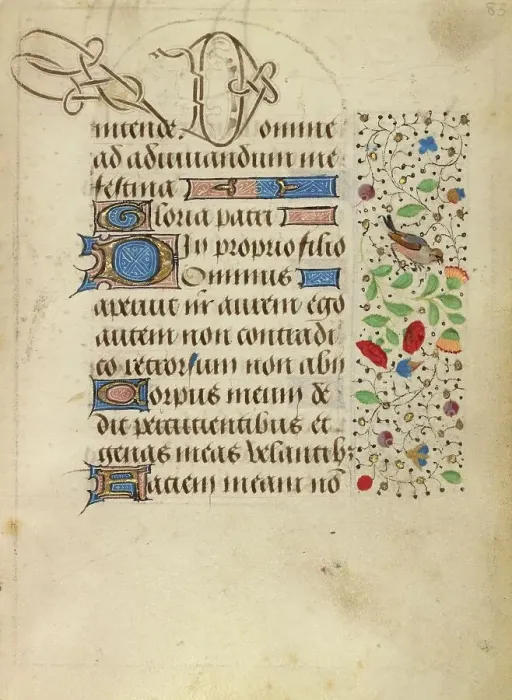 83
intende. Domine
ad adiuuandum me
festina
Gloria patri
In proprio filio
Dominus
aperuit m̄ aurem ego
autem non contradi
co retrorsum non abii
Corpus meum de
di percutientibus et
genas meas velantibꝫ
Faciem meam nō